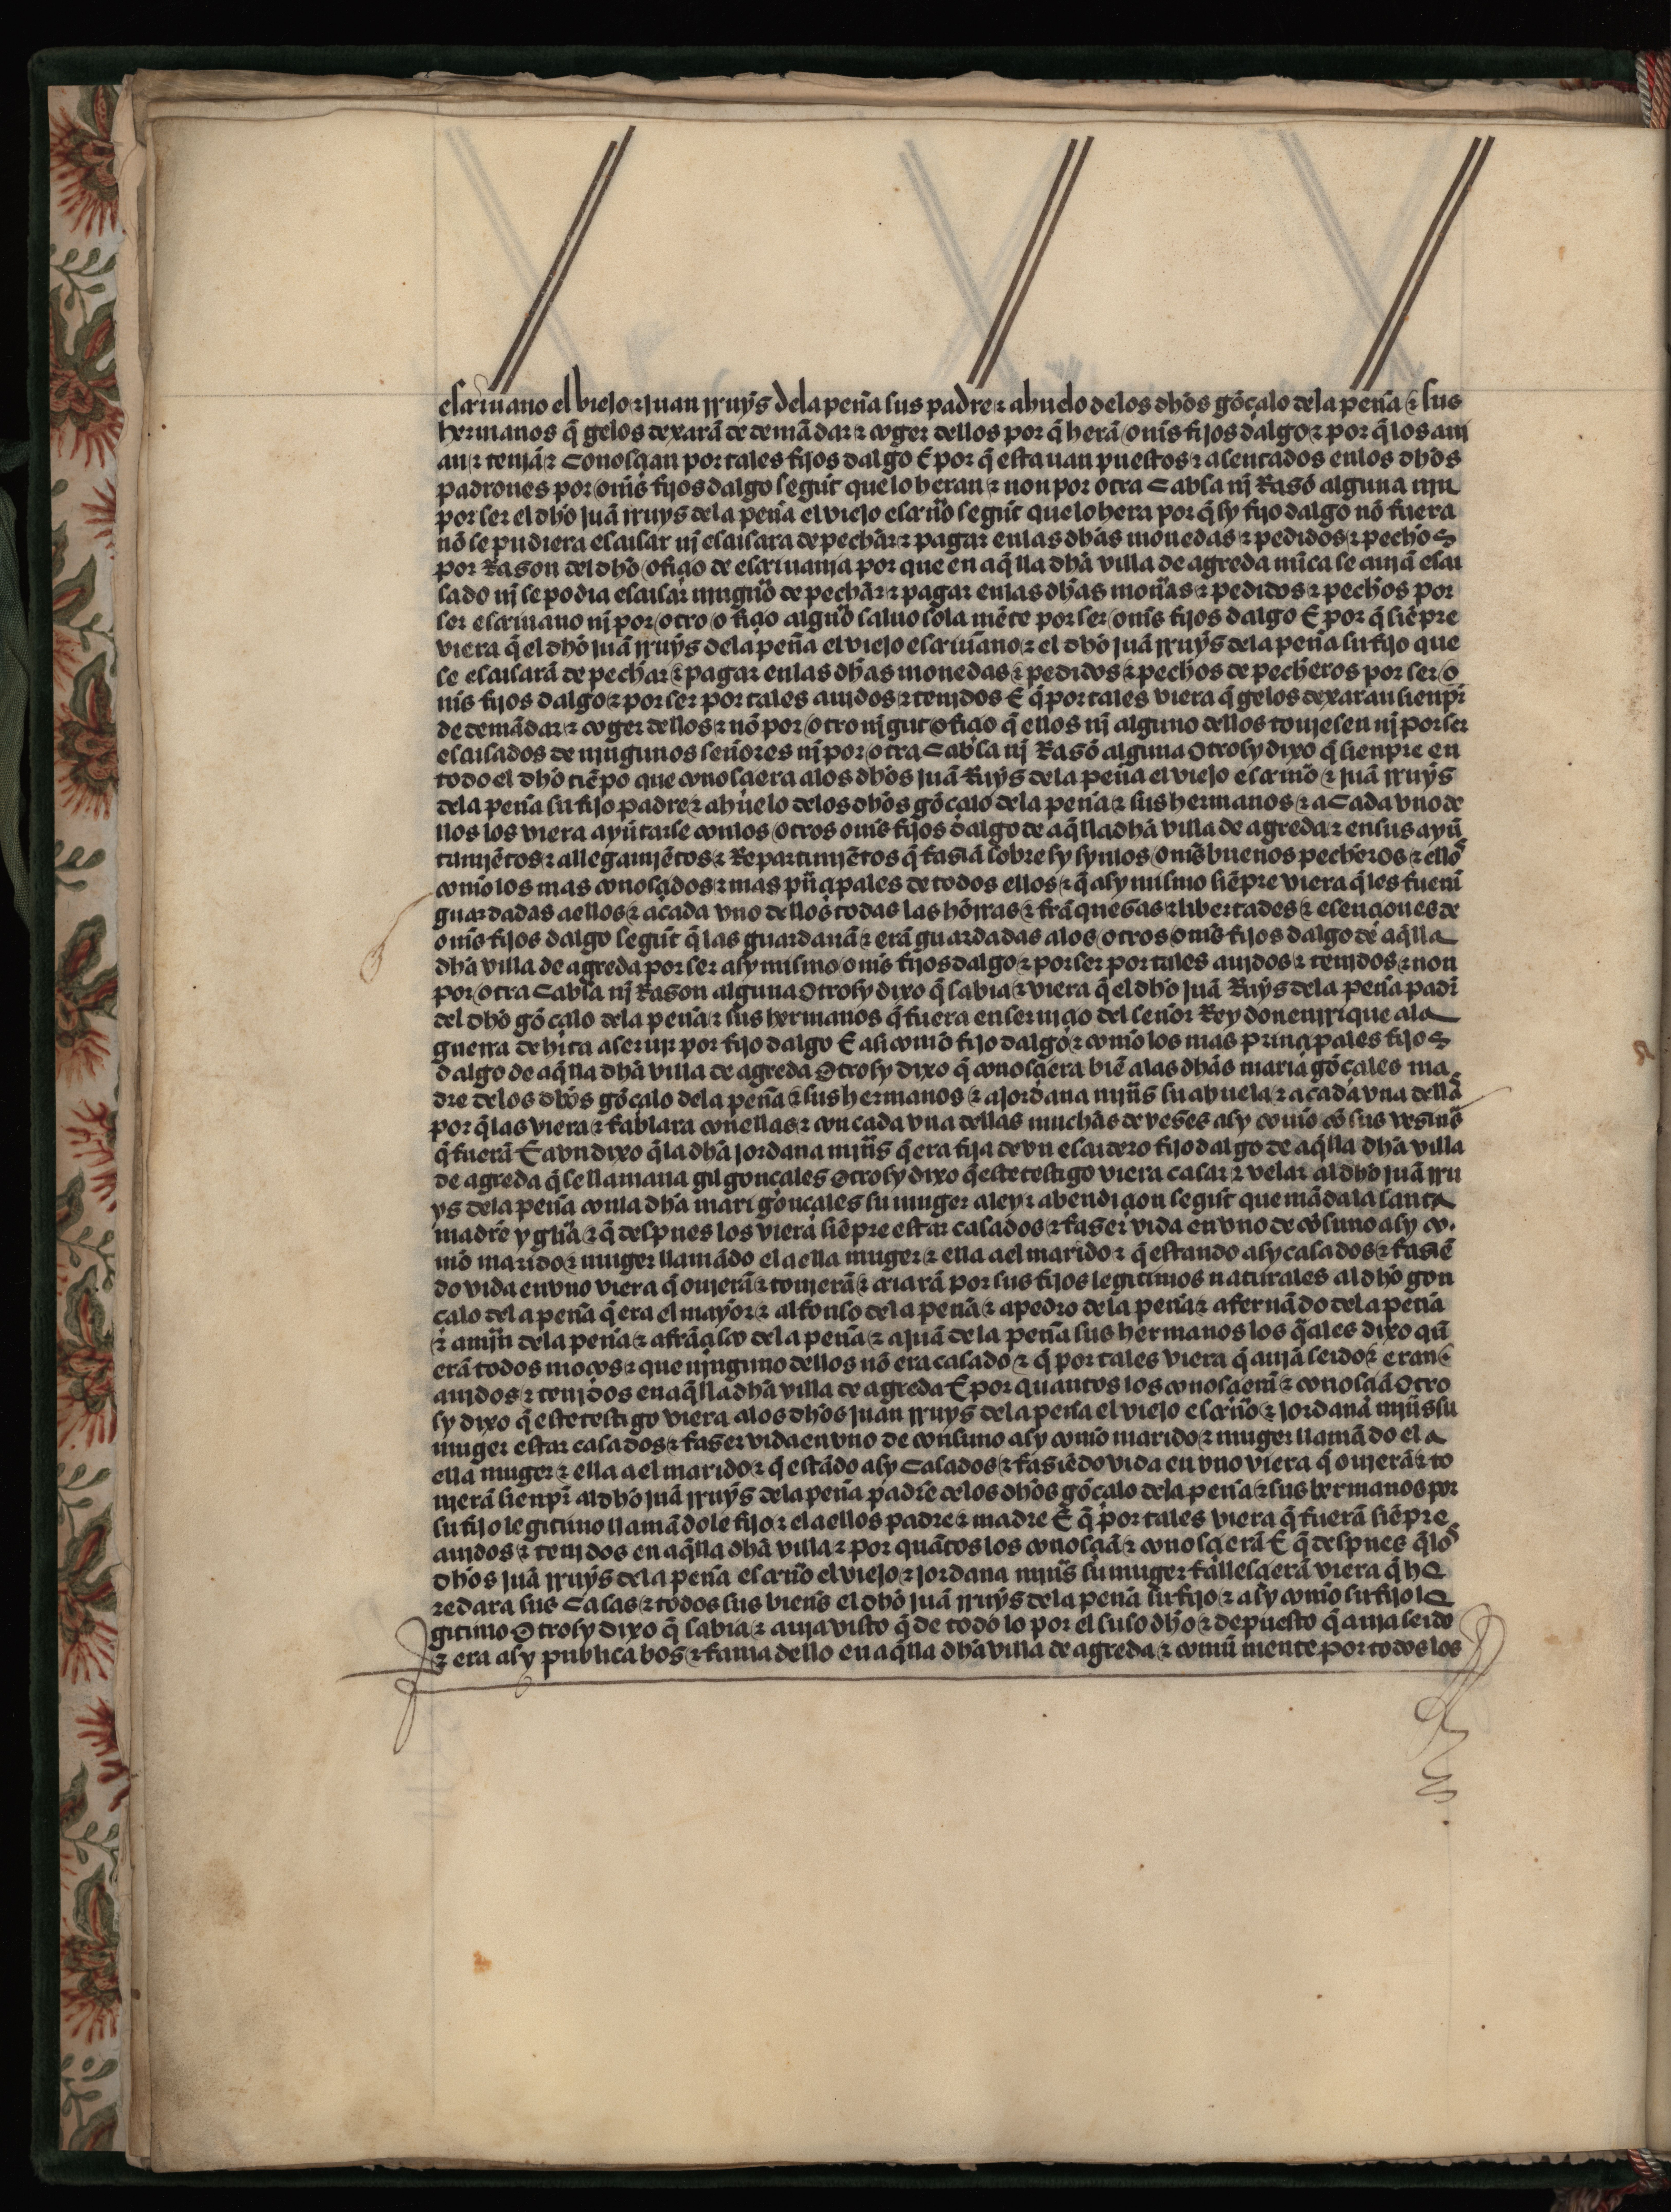 escriuano el biejo ⁊ juan rruys dela peña sus padre ⁊ ahuelo delos dhos gõçalo dela peña ⁊ sus
hermanos q̃ gelos dexarã de demãdar ⁊ coger dellos por q̃ herã om̃s fijos dalgo ⁊ por q̃ los auj
an ⁊ tenjã ⁊ conosçian por tales fijos dalgo E por q̃ estauan puestos ⁊ asentados enlos dhos
padrones por om̃s fijos dalgo segũt que lo heran ⁊ non por otra cabsa nj Rasõ alguna njn
por ser el dho juã rruys dela peña el viejo escriuño segũt que lo hera por q̃ sy fijo dalgo nõ fuera
nõ se pudiera escusar nj escusara de pechar ⁊ pagar enlas dhas monedas ⁊ pedidos ⁊ pechos
por Rason del dho ofiçio de escriuania por que en aq̃lla dha villa de agreda nũca se aujã escu
sado nj se podia escusar njnguno de pechar ⁊ pagar enlas dhas moñas ⁊ pedidos ⁊ pechos por
ser escriuano nj por otro ofiçio algũo saluo sola mẽte por ser om̃s fijos dalgo E por q̃ siẽpre
viera q̃ el dho juã rruys dela peña el viejo escriuano ⁊ el dho juã rruys dela peña su fijo que
se escusarã de pechar ⁊ pagar enlas dhas monedas ⁊ pedidos ⁊ pechos de pecheros por ser o
m̃s fijos dalgo ⁊ por ser por tales aujdos ⁊ tenjdos E q̃ por tales viera q̃ gelos dexaran sienpr̃
de demãdar ⁊ coger dellos ⁊ nõ por otro njgũt ofiçio q̃ ellos nj alguno dellos toujesen nj por ser
escusados de njngunos señores nj por otra cabsa nj Rasõ alguna Otrosy dixo q̃ sienpre en
todo el dho tiẽpo que conosçiera alos dhos juã Ruys dela peña el viejo escriuño ⁊ juã rruys
dela peña su fijo padre ⁊ ahuelo delos dhos gõçalo dela peña ⁊ sus hermanos ⁊ a cada vno de
llos los viera ayũtarse conlos otros om̃s fijos dalgo de aq̃lla dha villa de agreda ⁊ en sus ayũ
tamjẽtos ⁊ allegamjẽtos ⁊ Repartimjẽtos q̃ fasiã sobre sy syn los om̃s buenos pecheros ⁊ ellos
como los mas conosçidos ⁊ mas pñçipales de todos ellos ⁊ q̃ asy mismo siẽpre viera q̃ les fuerñ
guardadas a ellos ⁊ a cada vno dellos todas las honrras ⁊ frãquesas ⁊ libertades ⁊ esençiones de
om̃s fijos dalgo segũt q̃ las guardauã ⁊ erã guardadas alos otros om̃s fijos dalgo de aq̃lla
dha villa de agreda por ser asy mismo om̃s fijos dalgo ⁊ por ser por tales aujdos ⁊ tenjdos ⁊ non
por otra cabsa nj Rason alguna Otrosy dixo q̃ sabia ⁊ viera q̃ el dho juã Ruys dela peña padr̃
del dho gõçalo dela peña ⁊ sus hermanos q̃ fuera en serujçio del señor Rey don enrrique ala
guerra de hita a serujr por fijo dalgo E asi como fijo dalgo ⁊ como los mas prinçipales fijos
dalgo de aq̃lla dha villa de agreda Otrosy dixo q̃ conosçiera biẽ alas dhas maria gõçales ma
dre delos dhos gõçalo dela peña ⁊ sus hermanos ⁊ a jordana mjñs su abuela ⁊ a cada vna dellas
por q̃ las viera ⁊ fablara con ellas ⁊ con cada vna dellas muchas de veses asy como cõ sus vesinos
q̃ fuerã E avn dixo q̃ la dha jordana mjñs q̃ era fija de vn escudero fijo dalgo de aq̃lla dha villa
de agreda q̃ se llamaua gil gonçales Otrosy dixo q̃ este testigo viera casar ⁊ velar al dho juã rru
ys dela peña conla dha mari gonçales su muger a ley ⁊ a bendiçion segũt que mãda la santa
madre yglĩa ⁊ q̃ despues los viera siẽpre estar casados ⁊ faser vida en vno de cõsuno asy co
mo marido ⁊ muger llamãdo el a ella muger ⁊ ella a el marido ⁊ q̃ estando asy casados ⁊ fasiẽ
do vida en vno viera q̃ oujerã ⁊ toujerã ⁊ criarã por sus fijos legitimos naturales al dho gon
çalo dela peña q̃ era el mayor ⁊ alfonso dela peña ⁊ a pedro dela peña ⁊ a fernãdo dela peña
⁊ a mjñ dela peña ⁊ a frãçisco dela peña ⁊ a juã dela peña sus hermanos los q̃ales dixo qũ
erã todos moços ⁊ que njnguno dellos nõ era casado ⁊ q̃ por tales viera q̃ aujã seido ⁊ eran
aujdos ⁊ tenjdos en aq̃lla dha villa de agreda E por quantos los conosçierñ ⁊ conosçiã Otro
sy dixo q̃ este testigo viera alos dhos juan rruys dela peña el viejo escriuño ⁊ jordana mjñs su
muger estar casados ⁊ faser vida en vno de consuno asy como marido ⁊ muger llamãdo el a
ella muger ⁊ ella a el marido ⁊ q̃ estãdo asy casados ⁊ fasiẽdo vida en vno viera q̃ oujerã ⁊ to
ujerã sienpr̃ al dho juã rruys dela peña padre delos dhos gõçalo dela peña ⁊ sus hermanos por
su fijo legitimo llamãdole fijo ⁊ el a ellos padre ⁊ madre E q̃ por tales viera q̃ fuerã siẽpre
aujdos ⁊ tenjdos en aq̃lla dha villa ⁊ por quãtos los conosçiã ⁊ conosçierã E q̃ despues q̃ los
dhos juã rruys dela peña escriuño el viejo ⁊ jordana mjñs su muger fallesçierã viera q̃ he
redara sus casas ⁊ todos sus bienẽs el dho juã rruys dela peña su fijo ⁊ asy como su fijo le
gitimo Otrosy dixo q̃ sabia ⁊ auja visto q̃ de todo lo por el suso dho ⁊ depuesto q̃ auja seido
⁊ era asy publica bos ⁊ fama dello en aq̃lla dha villa de agreda ⁊ comũ mente por todos los